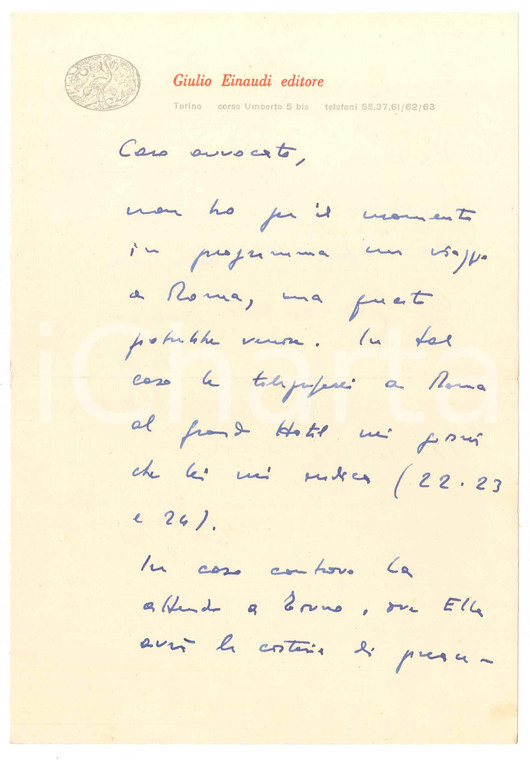 Giulio Einaudi editore
Torino corso Umberto 5 bis telefoni 55.37.61/62/63
Caro avvocato,
non ho per il momento
in programma un viaggio
a Roma, ma questo
potrebbe venire. In tal
caso le telegraferei a Roma
al Grand Hotel nei giorni
che lei mi indica (22. 23
e 24).
In caso contrario La
attendo a Torino, ove Ella
avrà la cortesia di prean-
iCharta